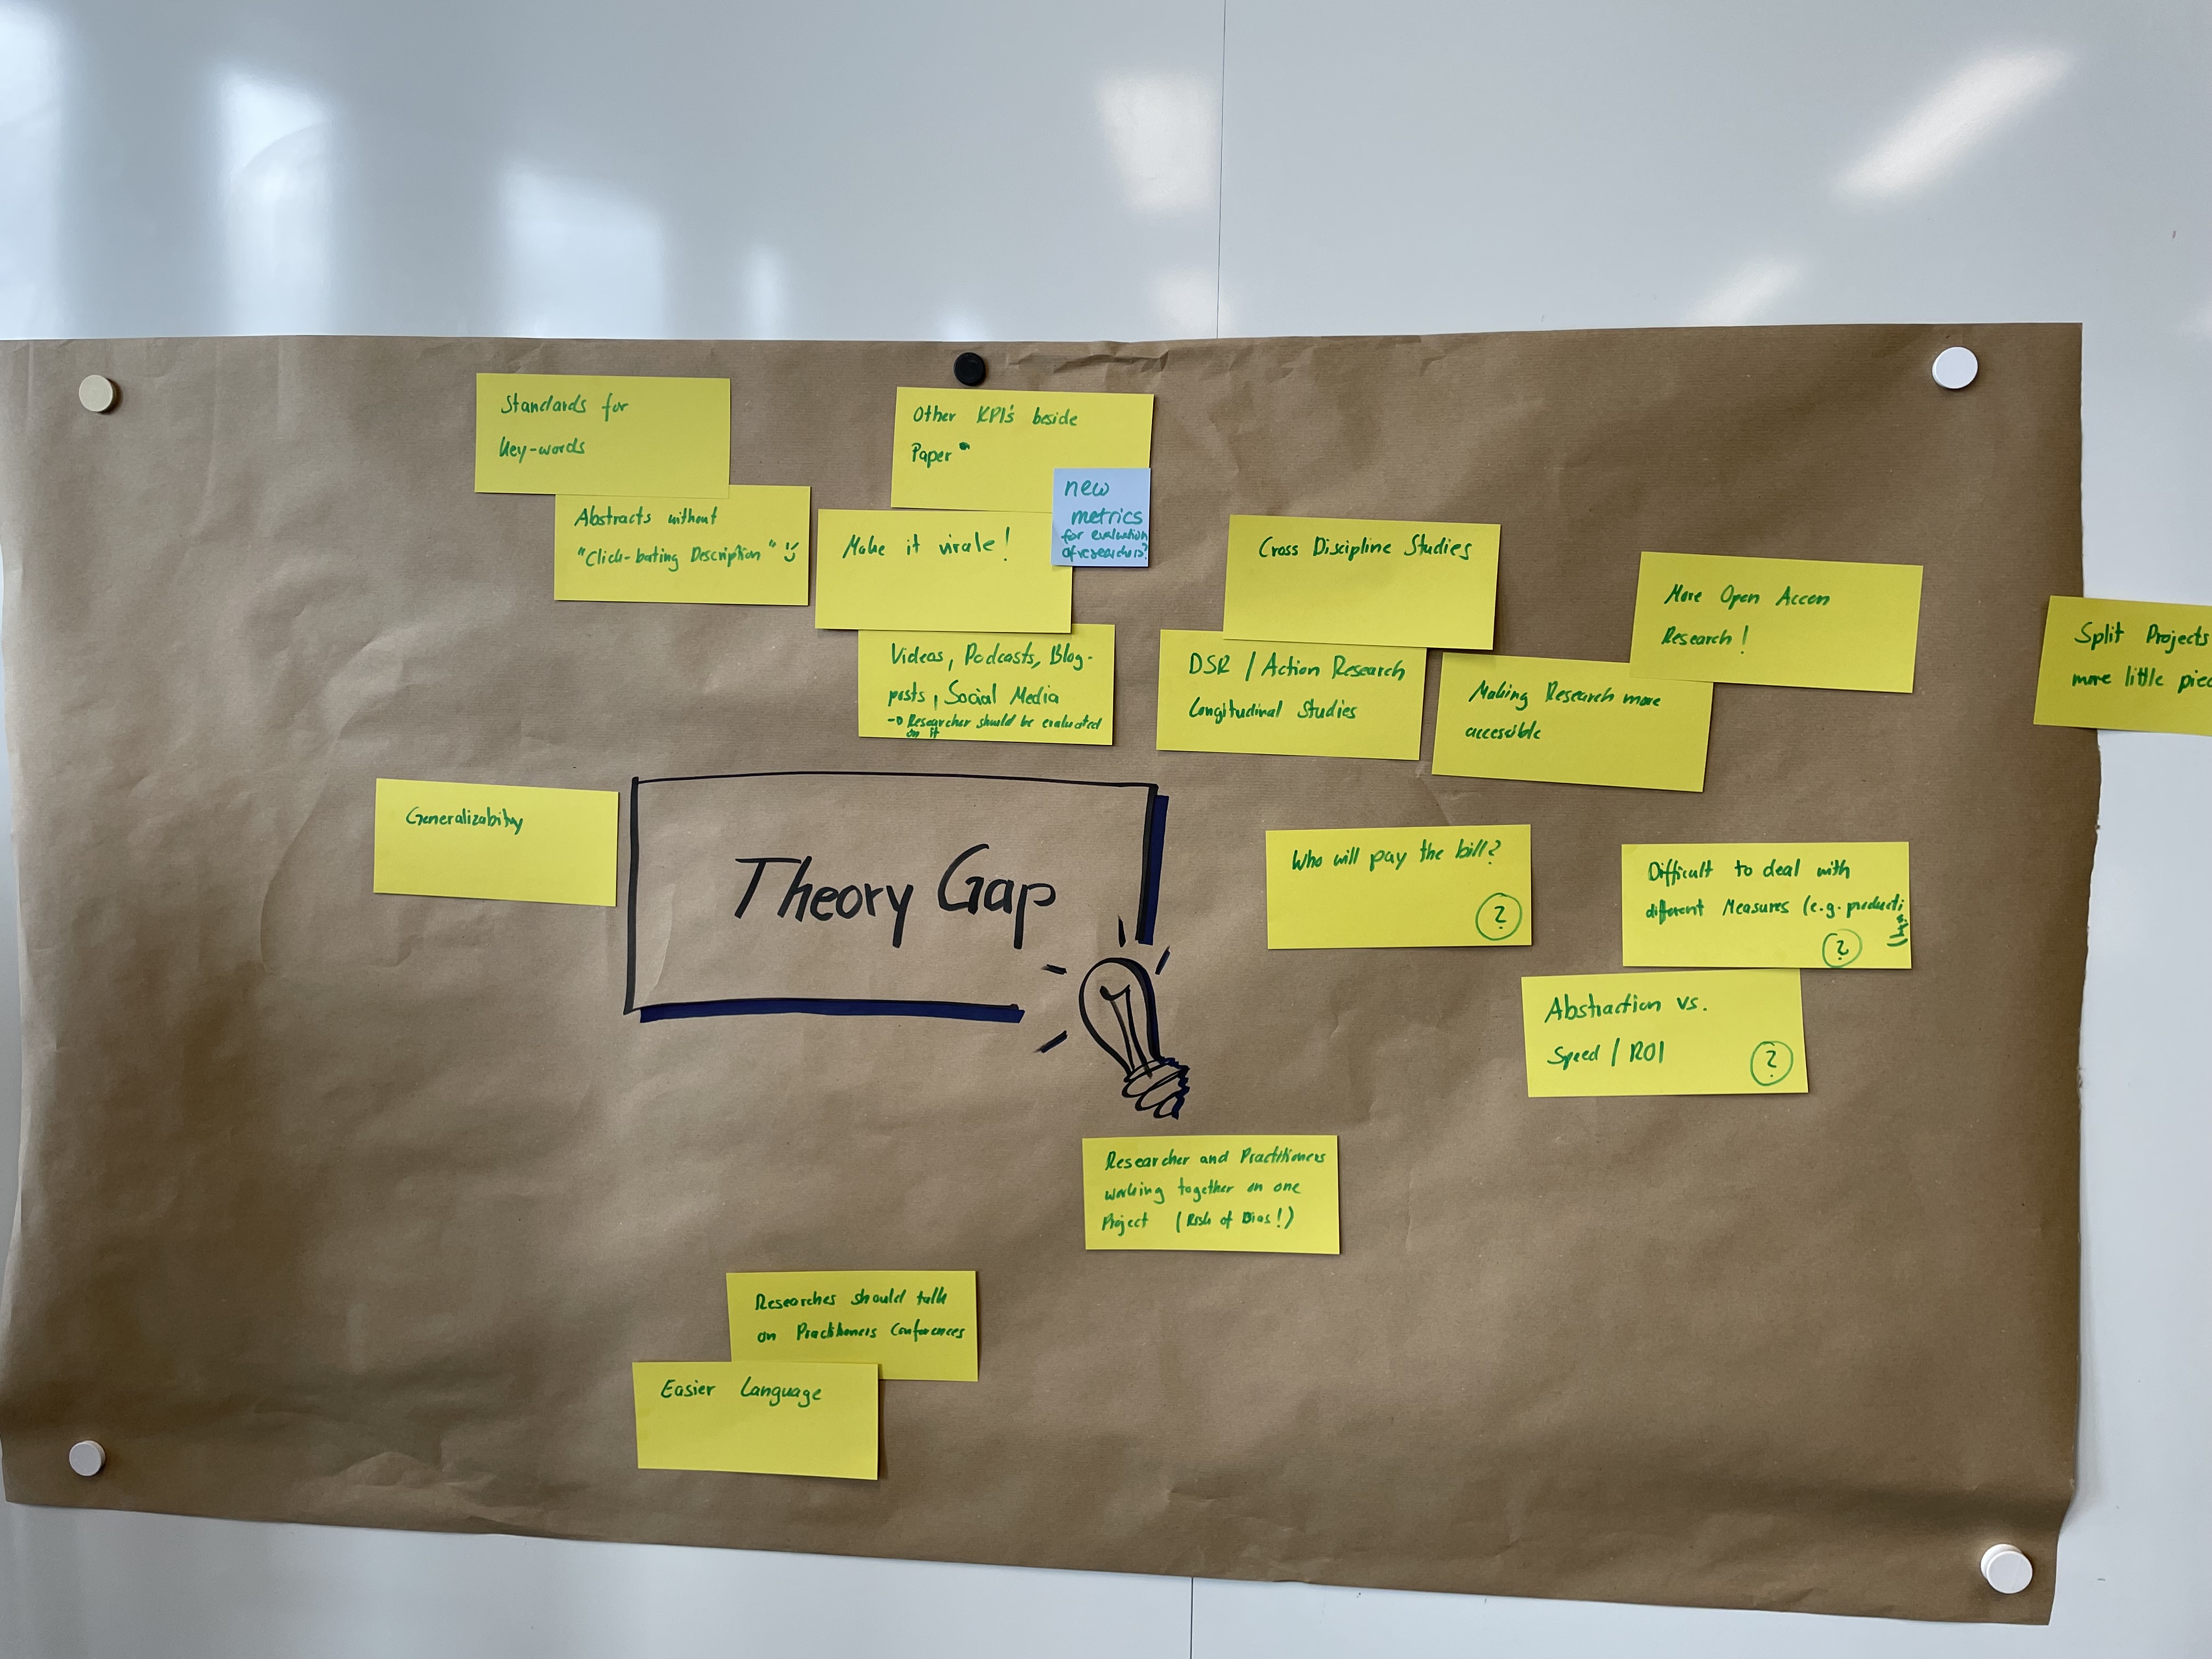 Standards for
Key-words
Abstracts without
"Click-bating Description"
Other KPI's beside
Paper
new
metrics
for evaluation
of researchers?
Make it virale!
Videos, Podcasts, Blog-
posts, Social Media
Researcher should be evaluated
on it
Cross Discipline Studies
DSR / Action Research
Longitudinal Studies
More Open Access
Research!
Making Research more
accessible
Split Projects
more little
Generalizability
Theory Gap
Who will pay the bill?
?
Difficult to deal with
different Measures (e.g. producti
vity)
?
Abstraction vs.
Speed / ROI
?
Researcher and Practitioners
working together on one
Project (Risk of Bias!)
Researches should talk
on Practitioners Conferences
Easier Language